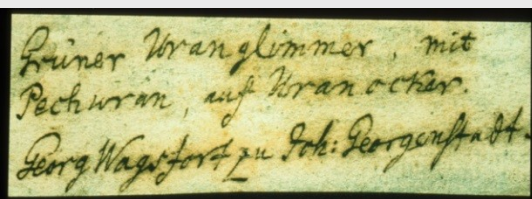 Grüner Uranglimmer, mit
Pechuran, auf Uranocker.
Georg Wagsfort zu Joh: Georgenstadt.